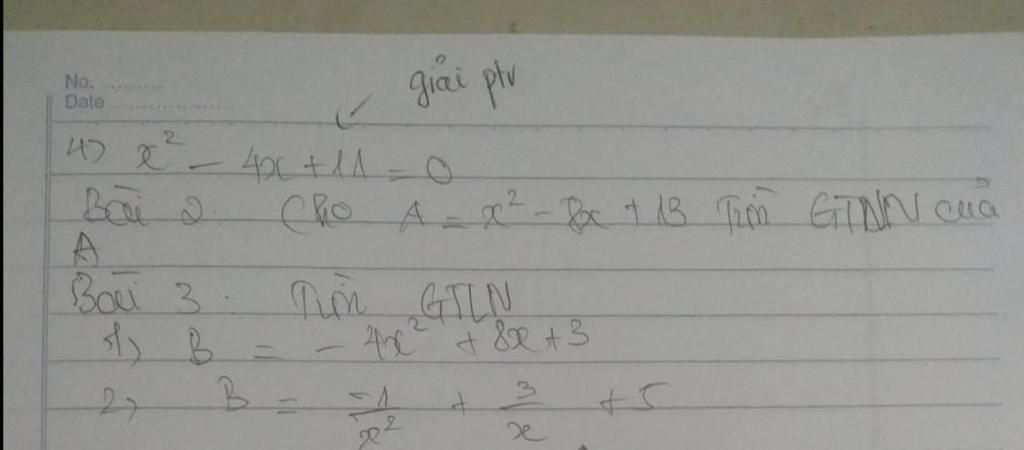 No. .........
Date ..................
giải ptr
4) x² - 4x + 11 = 0
Bài 2. Cho A = x² - 8x + 13 Tìm GTNN của
A
Bài 3. Tìm GTLN
1) B = - 4x² + 8x + 3
2) B = -1/x² + 3/x + 5